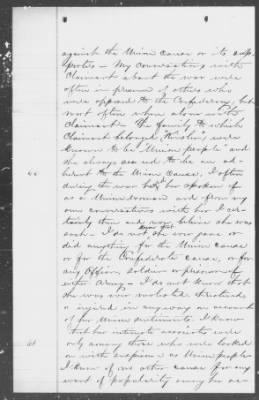 against the Union cause or its sup-
porters - My conversations with
Claimant about the war were
often in presence of others who
were opposed to the Confederacy, but
most often when alone with
Claimant. The family to which
Claimant belonged, were
known to be "Union people" and
she always seemed to be an ad-
herent to the Union Cause. I often
during the war heard her spoken of
as a Union woman and from my
own conversations with her I cer-
tainly then and now believe she was
such - I do not know that she ever gave or
did anything for the Union cause
or for the Confederate cause, or for
any Officer, soldier or prisoner of
either Army - I do not know that
she was ever molested threatened
or injured in any way on account
of her Union sentiments. I know
that her intimate associates were
only among those who were looked
on with suspicion as Union people
I know of no other cause for any
want of popularity among her ac-